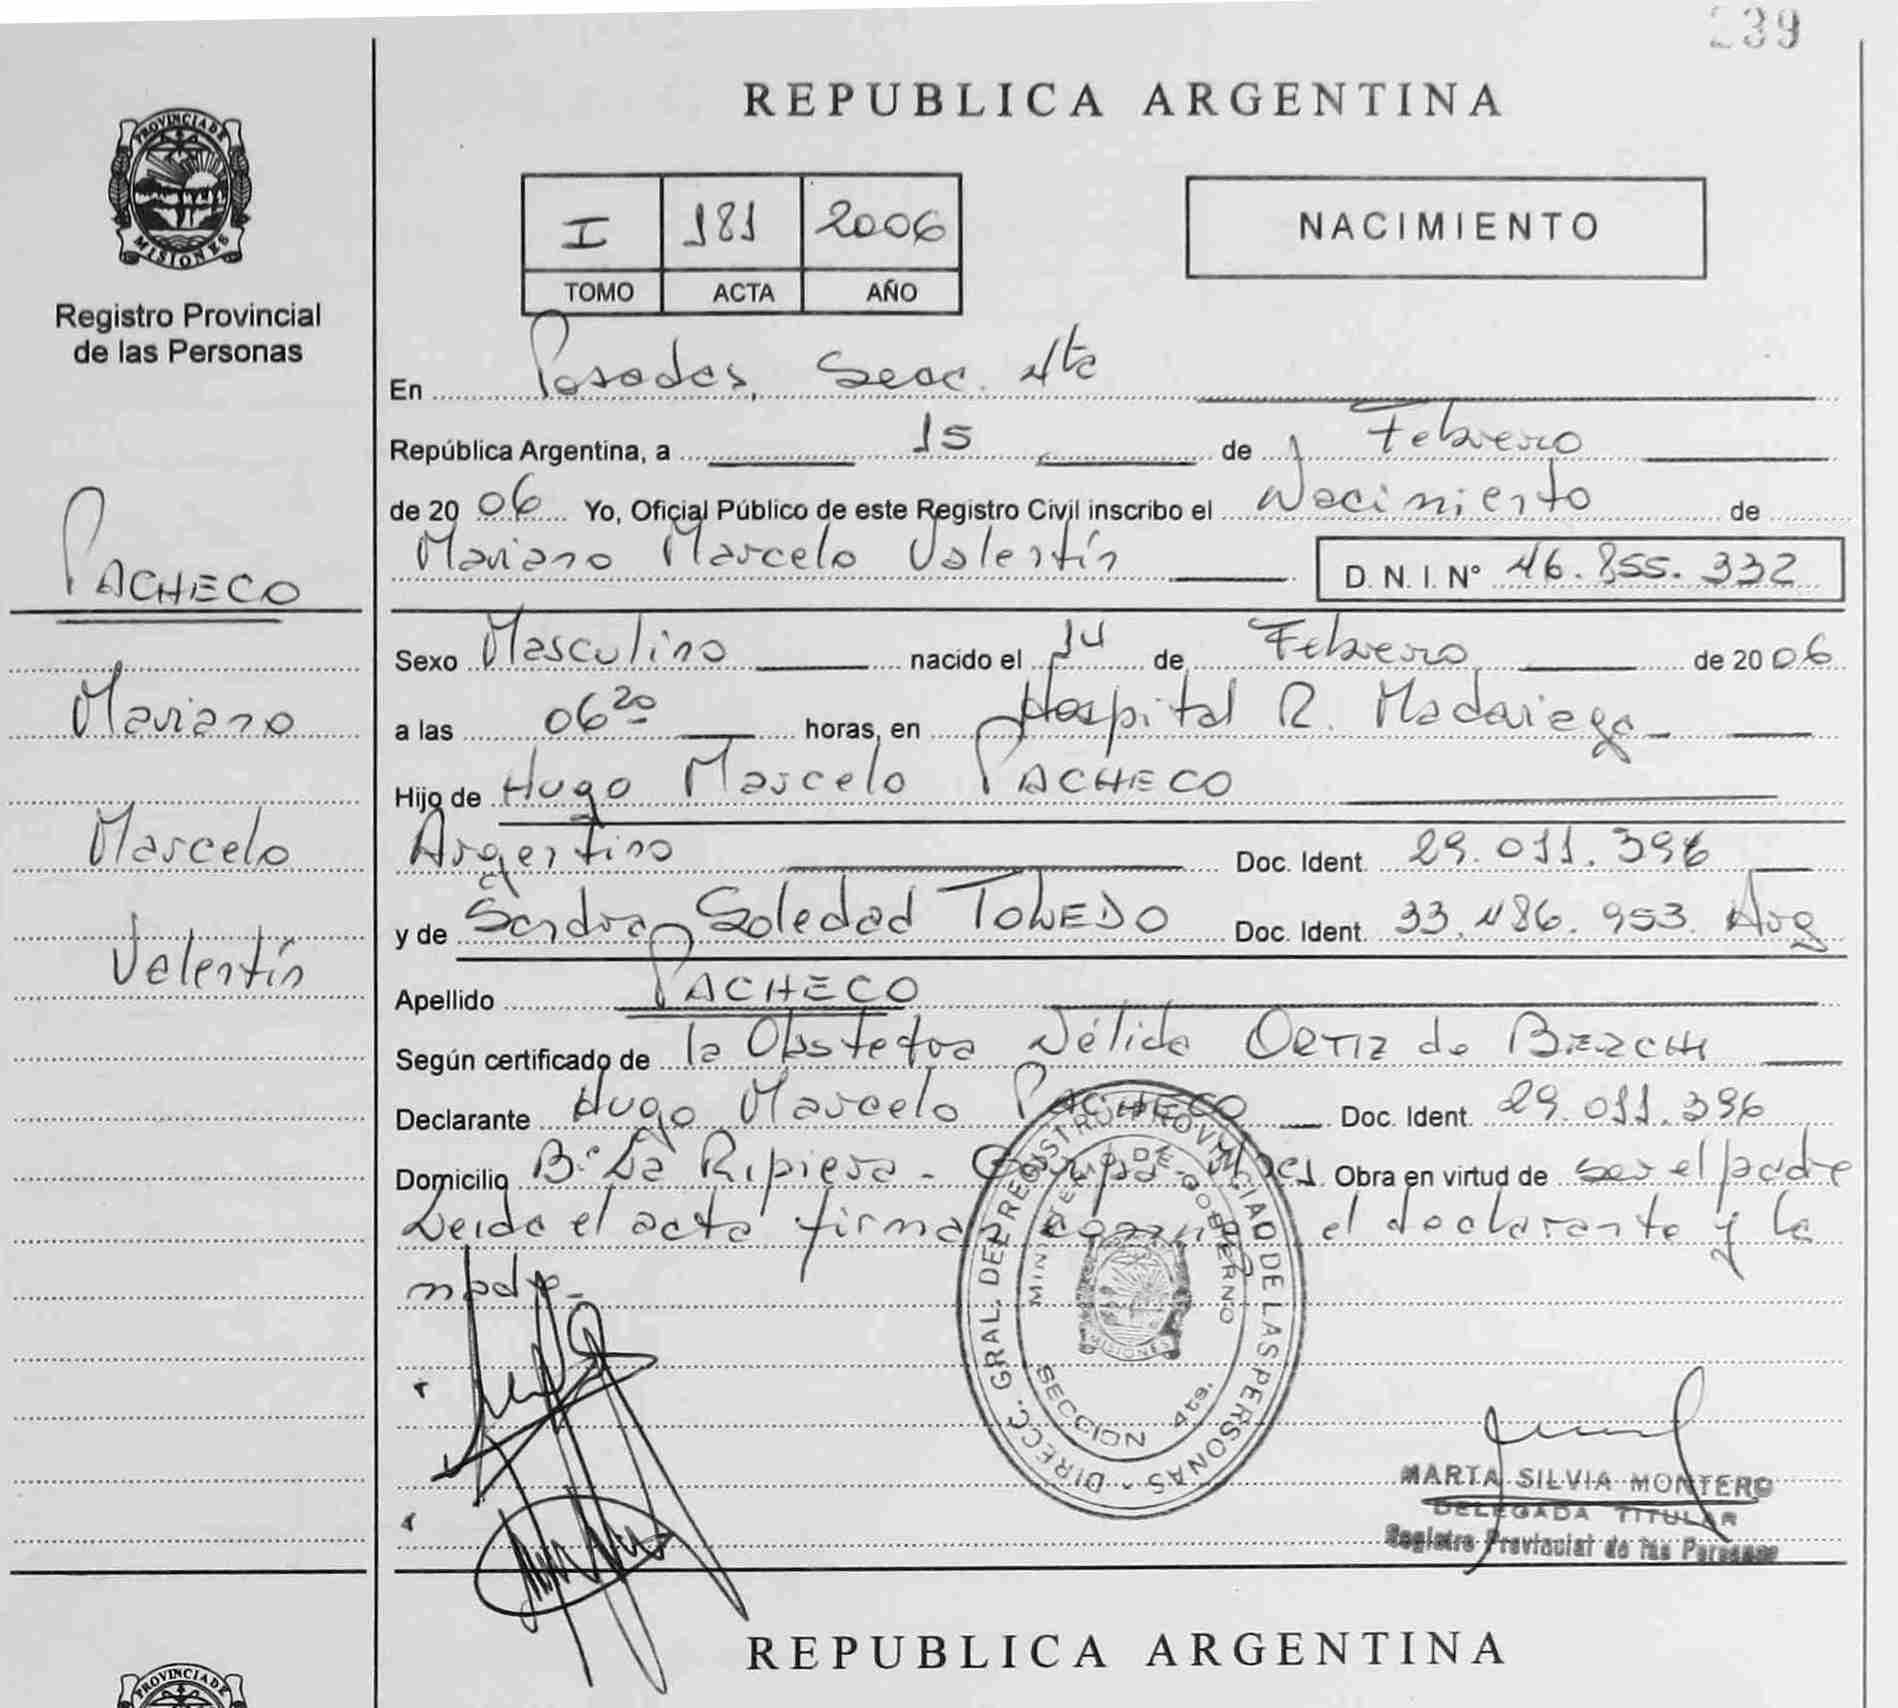 239
REPUBLICA ARGENTINA
PROVINCIA DE
MISIONES
Registro Provincial
de las Personas
I 181 2006
TOMO ACTA AÑO
NACIMIENTO
En Posadas, Secc. 4ta
República Argentina, a 15 de Febrero
de 2006 Yo, Oficial Público de este Registro Civil inscribo el Nacimiento de
Mariano Marcelo Valentín D. N. I. Nº 46.855.332
PACHECO
Mariano
Marcelo
Valentín
Sexo Masculino nacido el 14 de Febrero de 2006
a las 06 20 horas, en Hospital R. Madariaga
Hijo de Hugo Marcelo PACHECO
Argentino Doc. Ident. 29.011.396
y de Sandra Soledad TOLEDO Doc. Ident. 33.486.953. Arg
Apellido PACHECO
Según certificado de la Obstetra Nélida ORTIZ de
Declarante Hugo Marcelo PACHECO Doc. Ident. 29.011.396
Domicilio Bº La Ripiera - Garupá Mnes Obra en virtud de ser el padre
Leida el acta firman el declarante y la
madre-
DIRECC. GRAL. DEL REGISTRO PROVINCIAL DE LAS PERSONAS
MINISTERIO DE GOBIERNO
MISIONES
SECCION 4ta.
MARTA SILVIA MONTERO
DELEGADA TITULAR
Registro Provincial de las Personas
REPUBLICA ARGENTINA
PROVINCIA DE